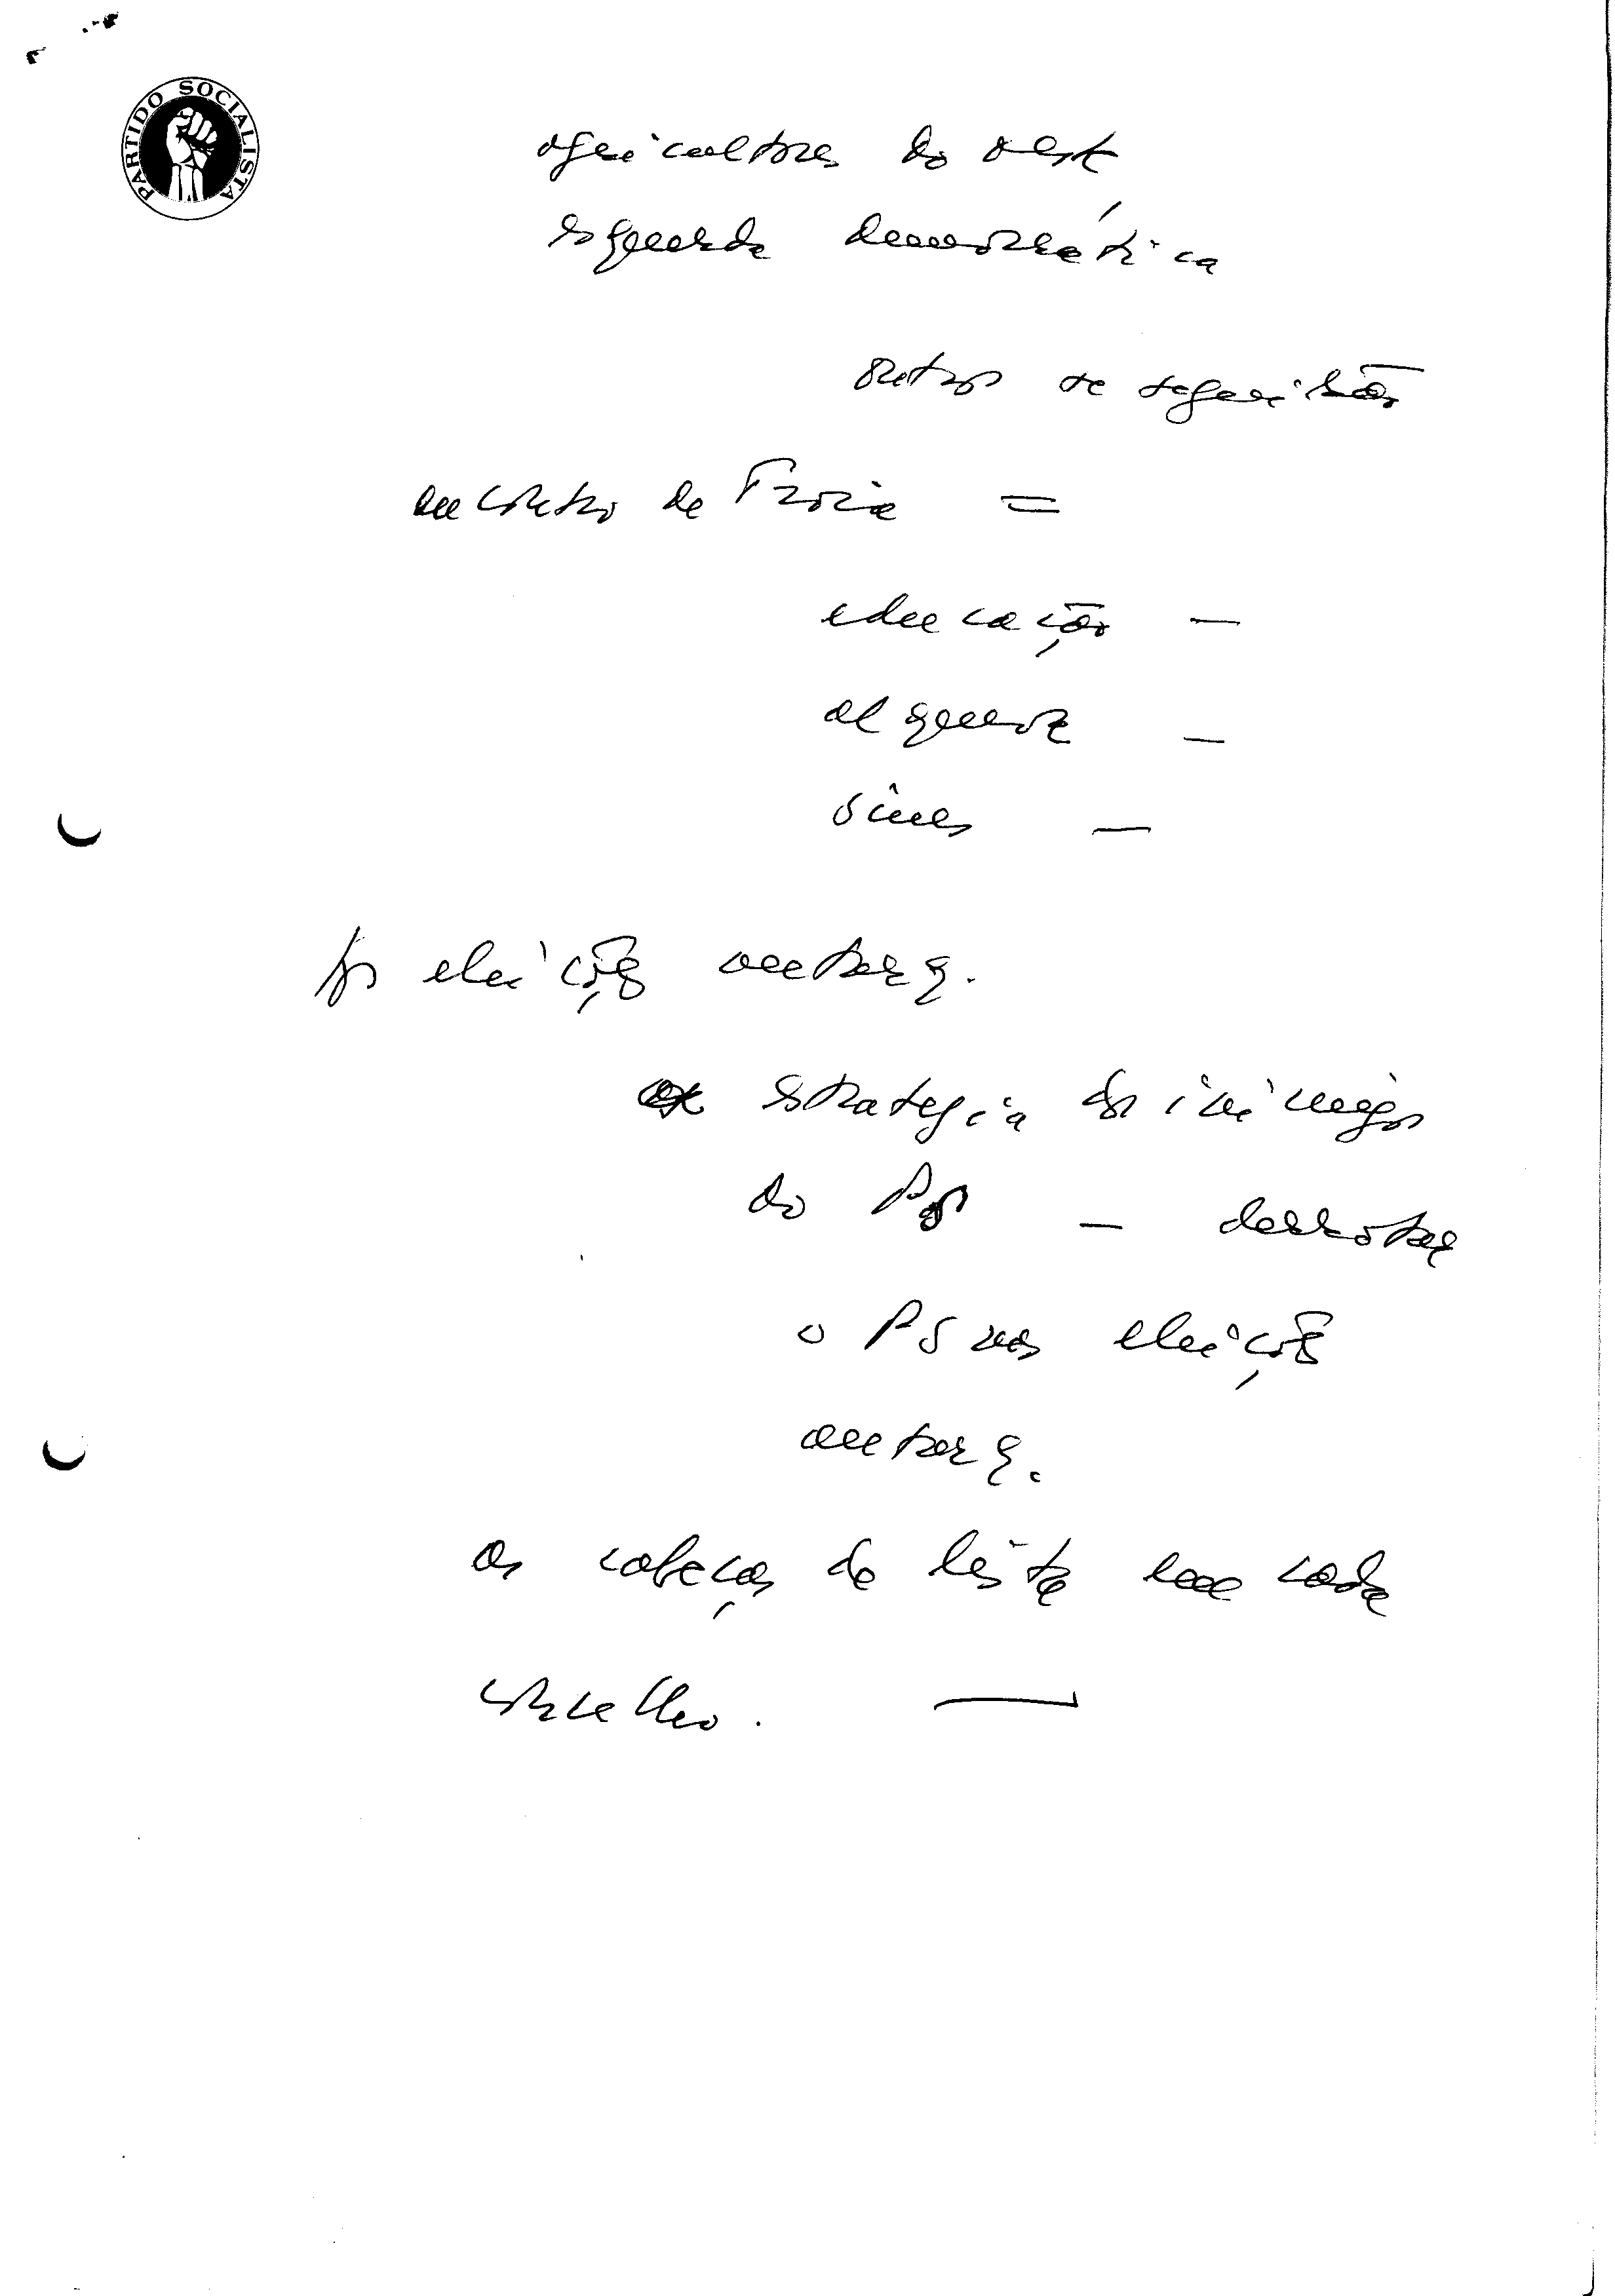 PARTIDO SOCIALISTA
agricultores do oeste
esquerda democrática
outros se seguirão
encontro de Troia =
educação —
alqueva —
sines —
as eleições autarq.
estrategia dos inimigos
do PS — derrotar
o PS nas eleições
autarq.
os cabeças de lista em cada
concelho. —